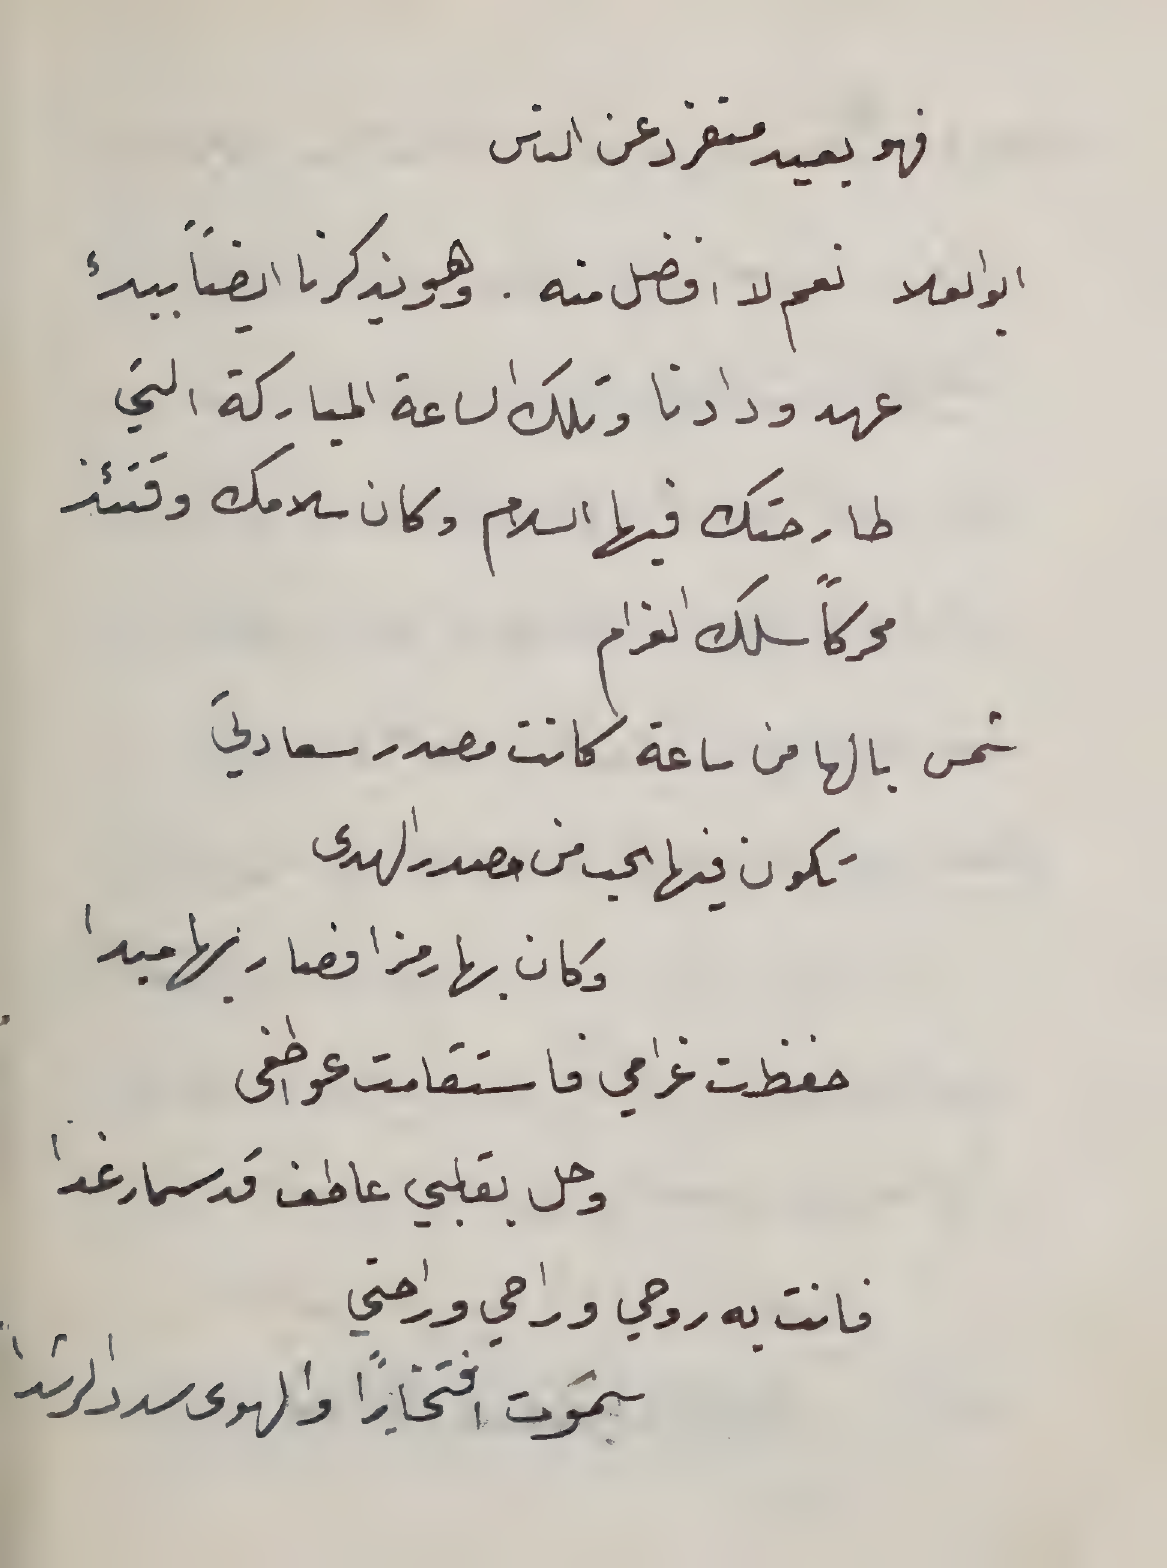 فهو بعيد منفرد عن الناس
ابو العلا نعم لا افضل منه . وهو يذكرنا ايضاً ببدء
عهد ودادنا وتلك الساعة المباركة التي
طارحتك فيها السلام وكان سلامك وقتئذ
محركاً سلك الغرام
شمس يالها من ساعة كانت مصدر سعادتي
تكون فيها الحب من مصدر الهدى
وكان بها رمزا فصار بها مبدا
حفظت غرامي فاستقامت عواطفى
وحل بقلبي عاطف قد سما رغدا
فانت به روحي وراحي وراحتي
سموت افتخارًا والهوى سدد الرشدا